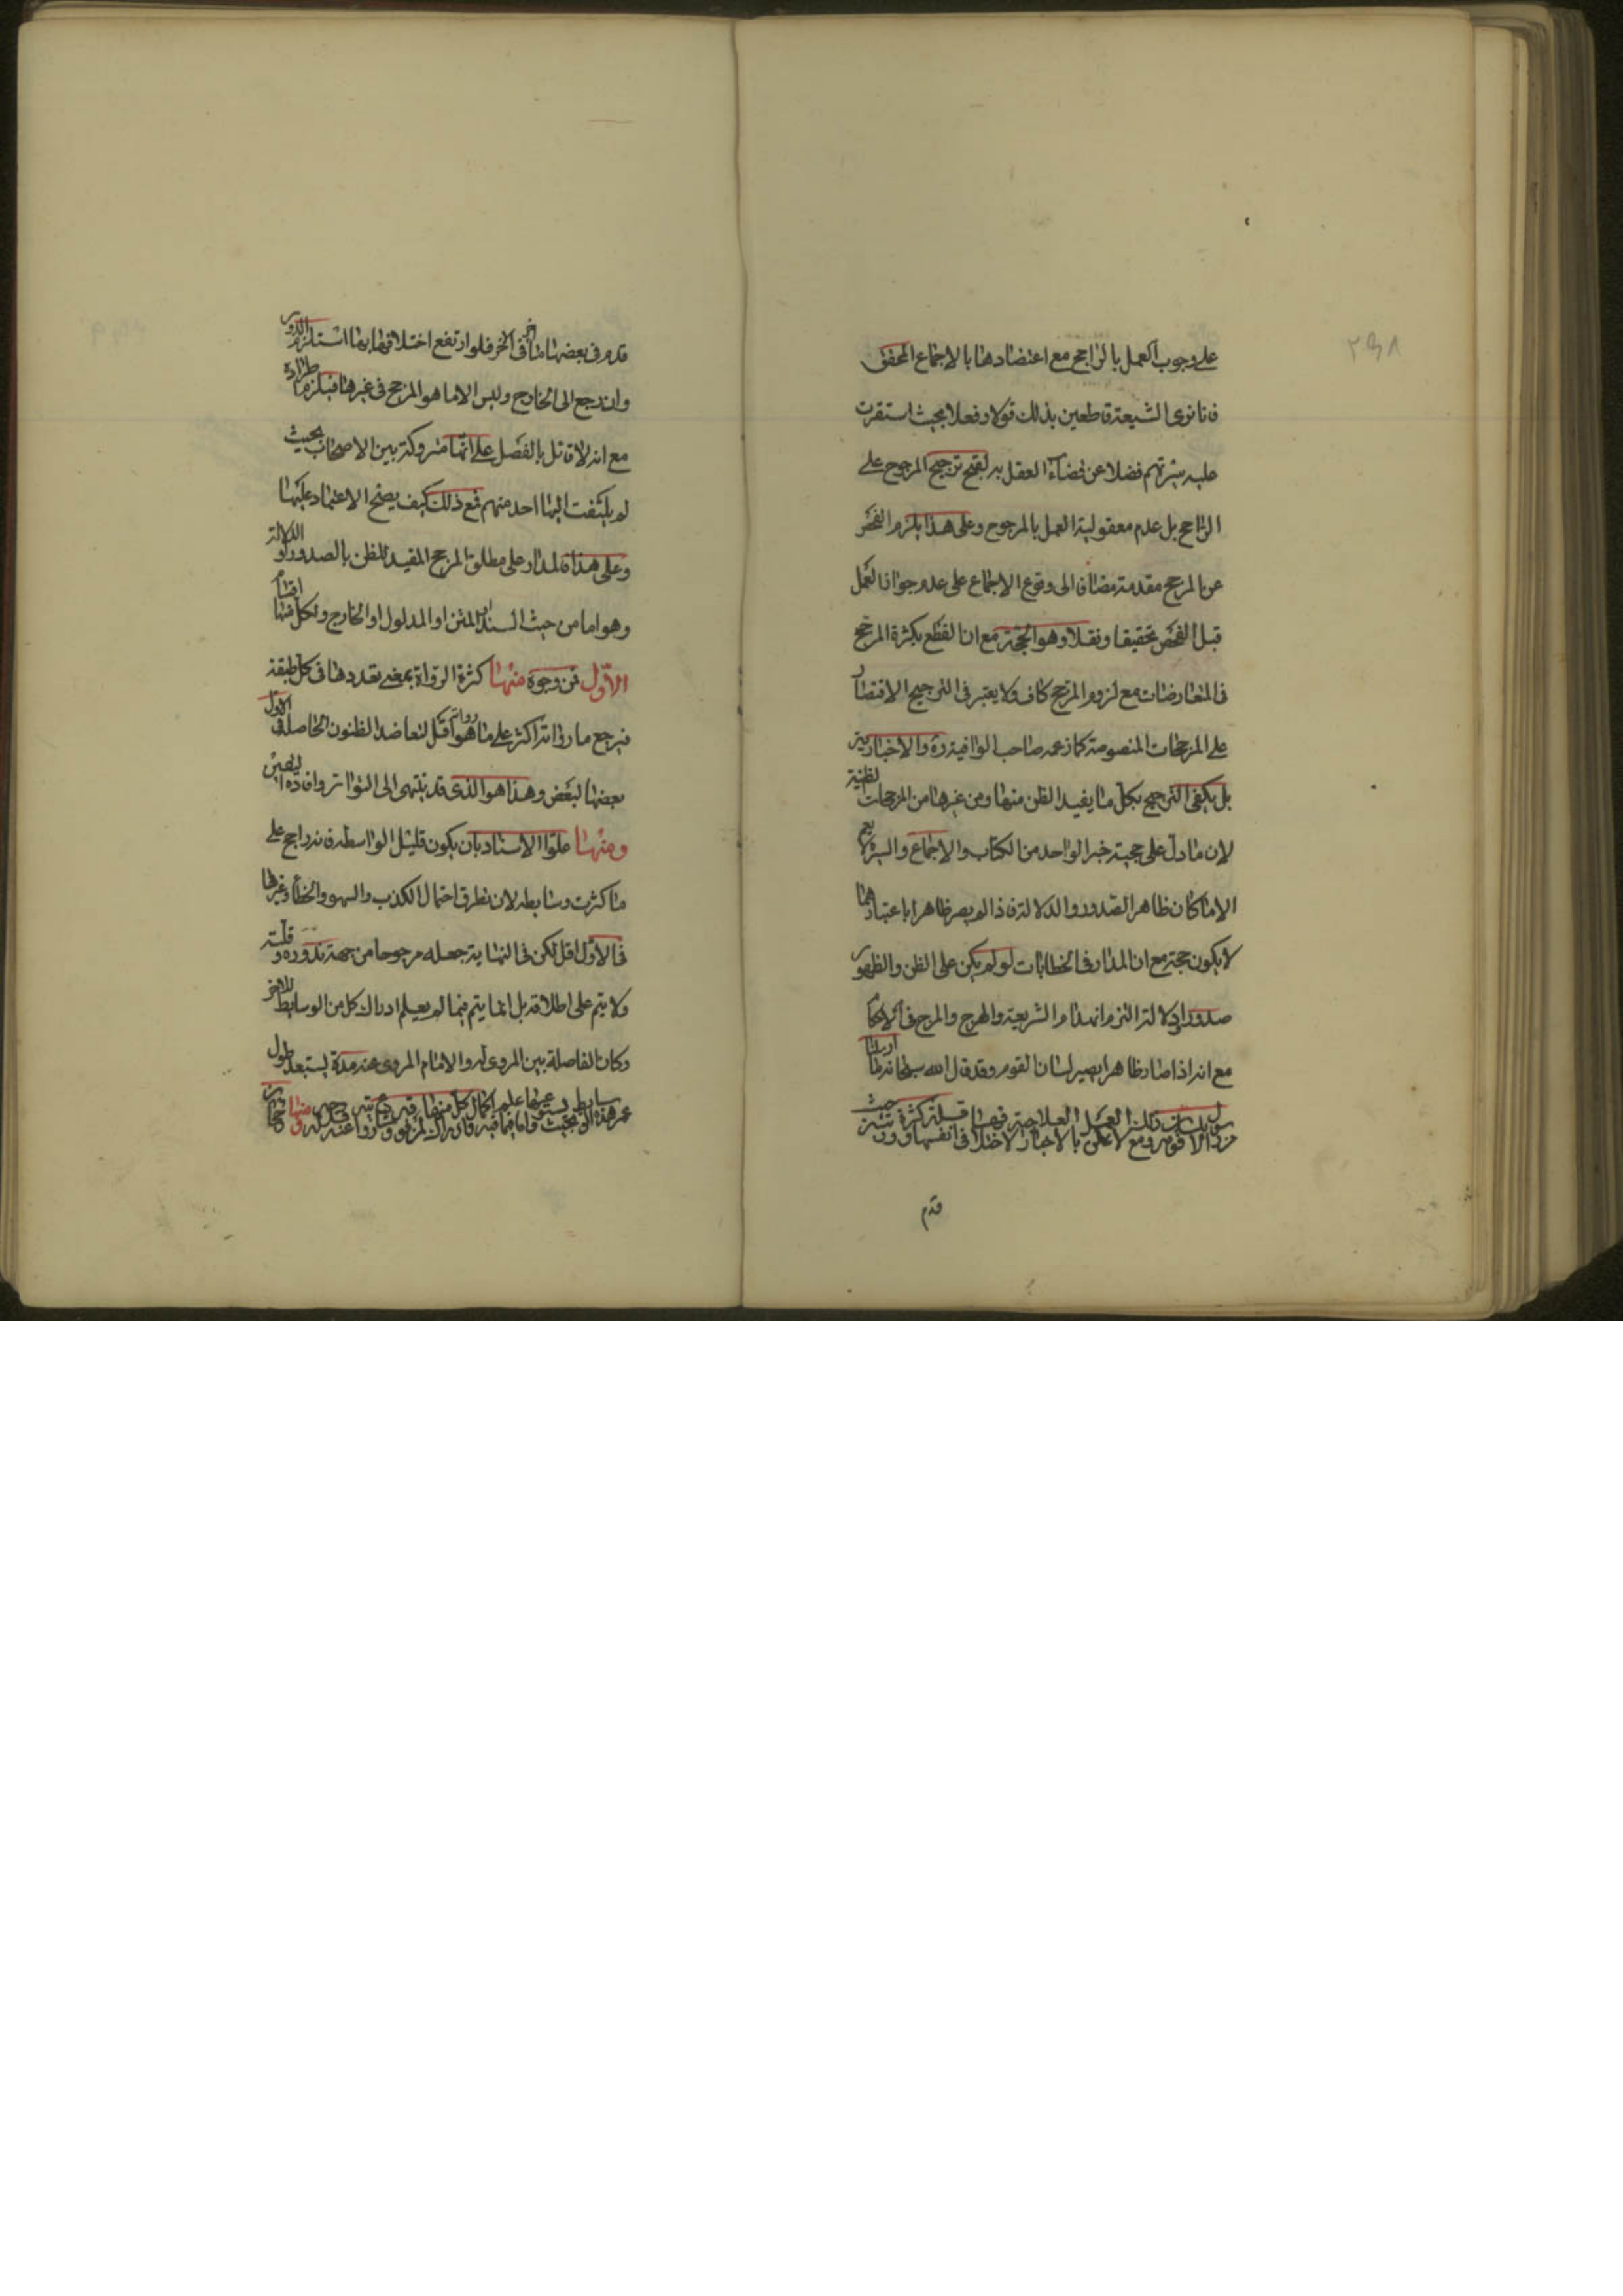 ٢٩٨
على وجوب العمل بالراجح مع اعتضادها بالاجماع المحقق
فانا نرى الشيعة قاطعين بذلك قولا وفعلا بحيث استقرت
عليه سيرتهم فضلا عن قضاء العقل به لقبح ترجيح المرجوح على
الراجح بل عدم معقولية العمل بالمرجوح وعلى هذا يلزم الفحص
عن المرجح مقدمة مضافا الى وقوع الاجماع على عدم جواز العمل
قبل الفحص تحقيقا ونقلا وهو الحجة مع ان القطع بكثرة المرجح
في المتعارضات مع لزوم المرجح كاف ولا يعتبر في الترجيح الاقتصار
على المرجحات المنصوصة كما زعمه صاحب الوافية ره والاخبارية
بل يكفى الترجيح بكل ما يفيد الظن منها ومن غيرها من المرجحات الظنية
لان ما دل على حجية خبر الواحد من الكتاب والاجماع والسيرة لا يعم
الا ما كان ظاهر الصدور والدلالة فاذا لم يصر ظاهرا باعتبارهما
لا يكون حجة مع ان المدار في الخطابات لو لم يكن على الظن والظهور
صدورا ودلالة التزم انهدام الشريعة والهرج والمرج في الاحكام
مع انه اذا صار ظاهرا يصير لسان القوم وقد قال الله سبحانه وما ارسلنا
من رسول الا بلسان قومه ومع ذلك لا يمكن العمل بالاخبار العلاجية لاختلافها في انفسها قلة وكثرة وترتيبا حيث
قدم
قدم في بعضها ما اخر في الاخر فلو ارتفع اختلافها بها استلزم الدور
وان رجع الى الخارج وليس الا ما هو المرجح في غيرها فيلزم اطراده
مع انه لا قائل بالفصل على انها متروكة بين الاصحاب بحيث
لم يلتفت اليها احد منهم فمع ذلك كيف يصح الاعتماد عليها
وعلى هذا فالمدار على مطلق المرجح المفيد للظن بالصدور او الدلالة
وهو اما من حيث السند او المتن او المدلول او الخارج ولكل منها اقسام
الاول فمن وجوه منها كثرة الرواة بمعنى تعددها في كل طبقة
فيرجح ما رواته اكثر على ما هو اقل رواته لتعاضد الظنون الحاصلة في الاول
بعضها لبعض وهذا هو الذى قد ينتهى الى التواتر وافادة اليقين
ومنها علو الاسناد بان يكون قليل الواسطة فانه راجح على
ما كثرت وسايطه لان تطرق احتمال الكذب والسهو والخطأ وغيرها
في الاول اقل لكن في النهاية جعله مرجوحا من جهة ندوره وقلته
ولا يتم على اطلاقه بل انما يتم فيما لم يعلم ادراك كل من الوسايط للاخر
وكان الفاصلة بين المروي له والامام المروى عنه مدة يستبعد طول